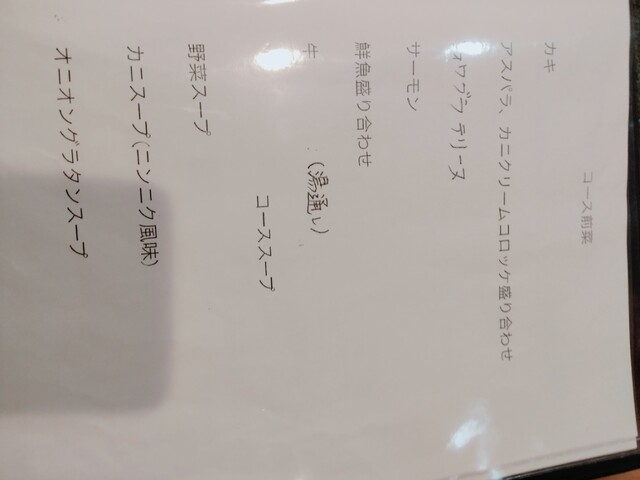 コース前菜
カキ
アスパラ、カニクリームコロッケ盛り合わせ
テリーヌ
サーモン
鮮魚盛り合わせ
牛
(湯通し)
コーススープ
野菜スープ
カニスープ(ニンニク風味)
オニオングラタンスープ